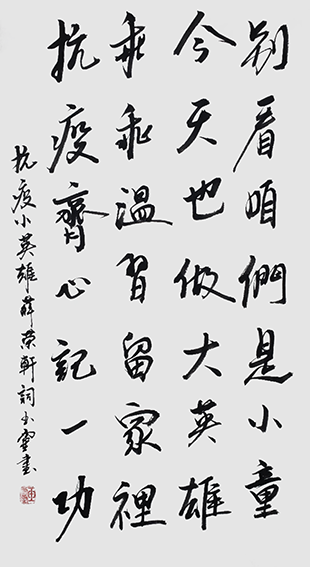 别看咱們是小童
今天也做大英雄
乖乖溫習留家裡
抗疫齊心記一功
抗疫小英雄薛荣軒詞小雲書